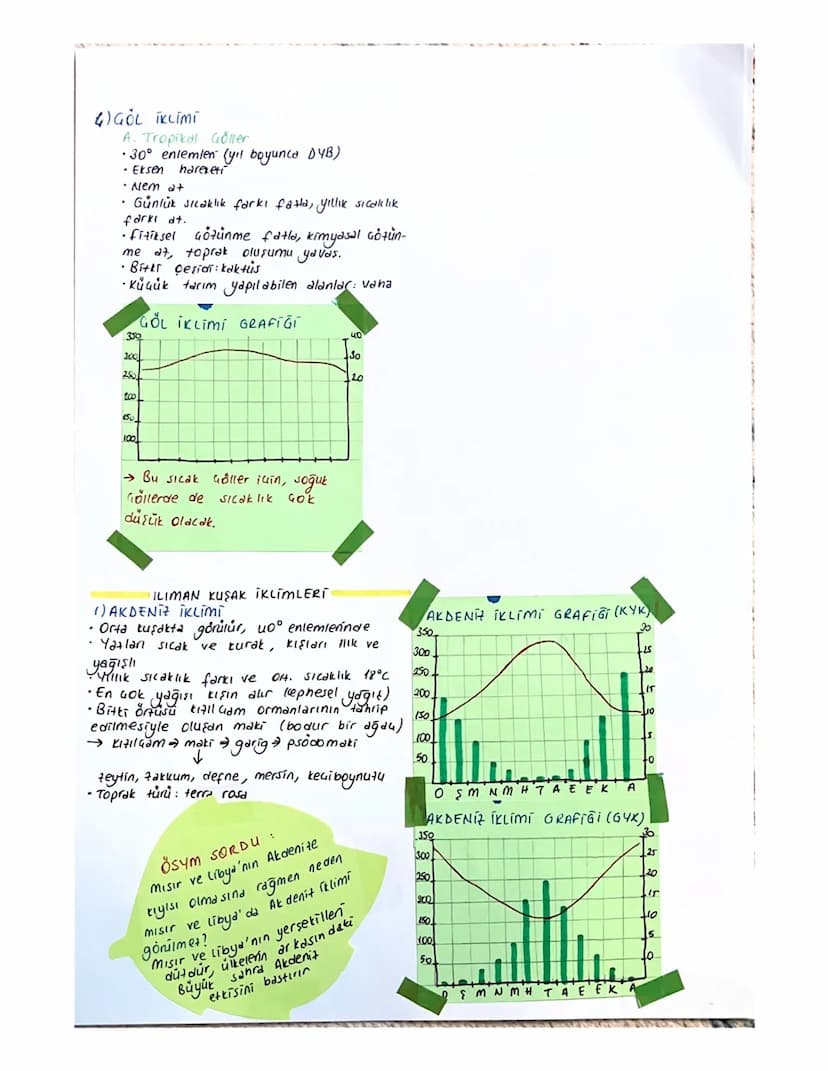 4) GÖL İKLİMİ
A. Tropikal Göller
• 30° enlemleri (yıl boyunca DYB)
• Eksen hareketi
• Nem az
• Günlük sıcaklık farkı fazla, yıllık sıcaklık
farkı az.
• Fiziksel çözünme fazla, kimyasal çözün-
me az, toprak oluşumu yavaş.
• Bitki çeşidi: kaktüs
• Küçük tarım yapılabilen alanlar: vaha
ÇÖL İKLİMİ GRAFİĞİ
350
300
250
200
150
100
40
30
20
→ Bu sıcak çöller için, soğuk
çöllerde de sıcaklık çok
düşük olacak.
ILIMAN KUŞAK İKLİMLERİ
1) AKDENİZ İKLİMİ
• Orta kuşakta görülür, 40° enlemlerinde
• Yazları sıcak ve kurak, kışları ılık ve
yağışlı
• Yıllık sıcaklık farkı ve ort. sıcaklık 18°C
• En çok yağışı kışın alır (cephesel yağış)
• Bitki örtüsü kızılçam ormanlarının tahrip
edilmesiyle oluşan maki (bodur bir ağaç)
→ kızılçam → maki → garig → psödomaki
↓
zeytin, zakkum, defne, mersin, keçiboynuzu
• Toprak türü: terra rosa
ÖSYM SORDU:
Mısır ve Libya'nın Akdenize
kıyısı olmasına rağmen neden
Mısır ve Libya'da Akdeniz iklimi
görülmez?
Mısır ve Libya'nın yerşekilleri
düzdür, ülkelerin arkasındaki
Büyük Sahra Akdeniz
etkisini bastırır
AKDENİZ İKLİMİ GRAFİĞİ (KYK)
350
300
250
200
150
100
50
30
25
20
15
10
5
0
O Ş M N M H T A E E K A
AKDENİZ İKLİMİ GRAFİĞİ (GYK)
350
300
250
200
150
100
50
30
25
20
15
10
5
0
O Ş M N M H T A E E K A